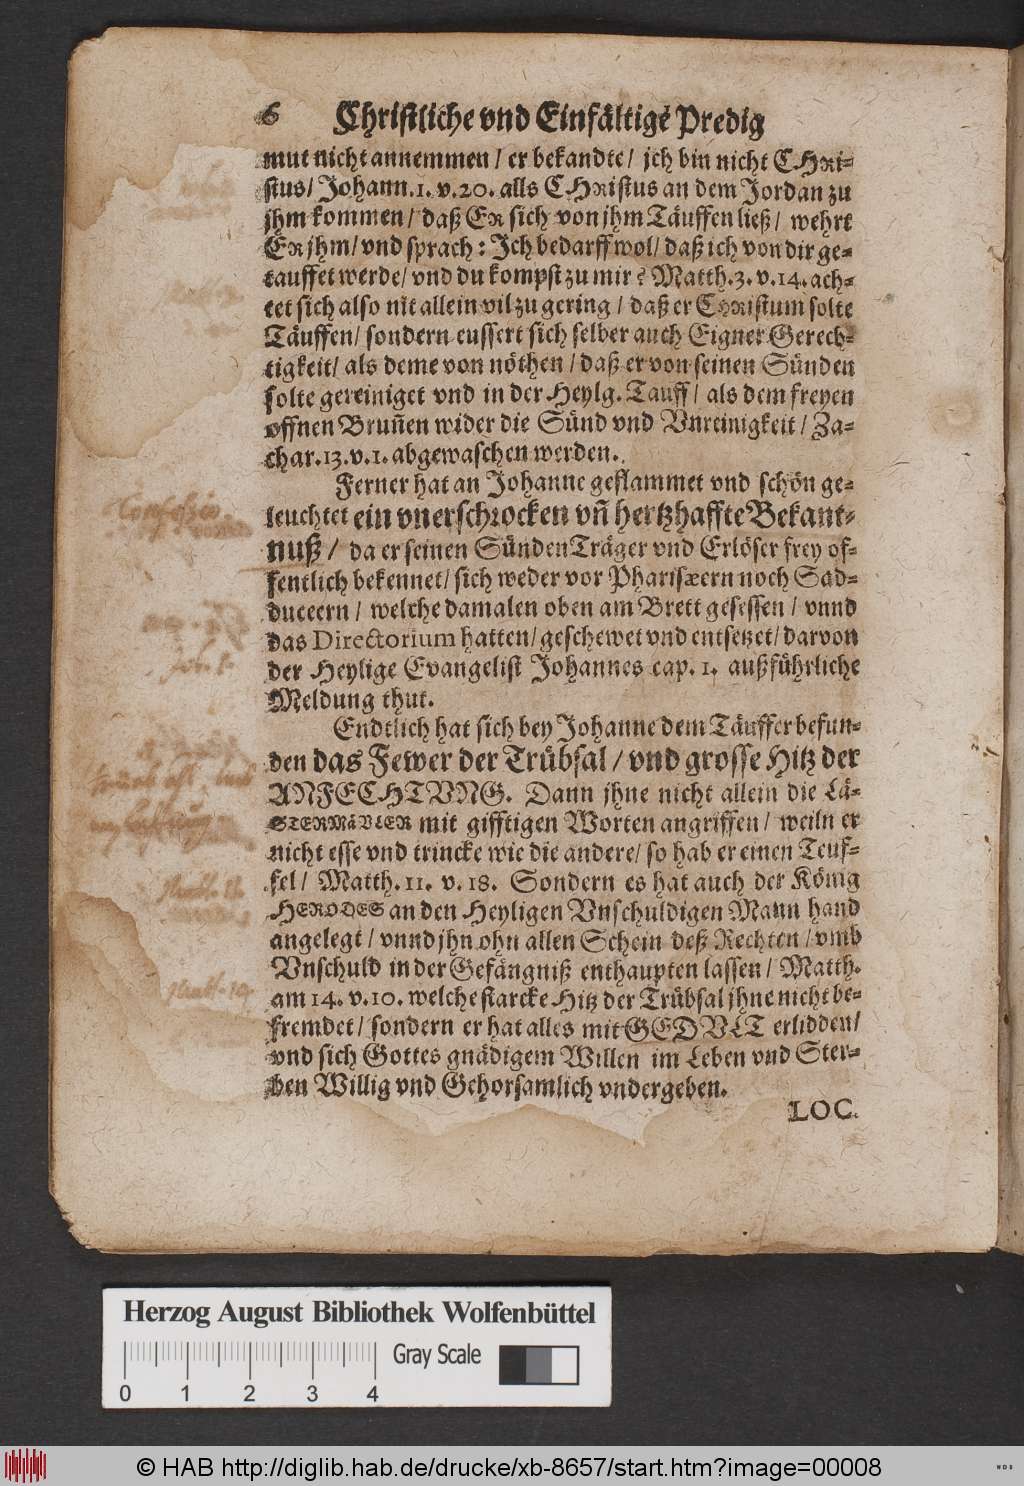 6 Christliche vnd Einfältige Predig
mut nicht annemmen / er bekandte / jch bin nicht CHRi-
stus / Johann. 1. v. 20. alls CHRistus an dem Jordan zu
jhm kommen / daß ER sich von jhm Täuffen ließ / wehrt
ER jhm / vnd sprach : Ich bedarff wol / daß ich von dir ge-
tauffet werde / vnd du kompst zu mir ? Matth. 3. v. 14. ach-
tet sich also nit allein vil zu gering / daß er CHRistum solte
Täuffen / sondern eussert sich selber auch Eigner Gerech-
tigkeit / als deme von nöthen / daß er von seinen Sünden
solte gereiniget vnd in der Heylg. Tauff / als dem freyen
offnen Bruñen wider die Sünd vnd Vnreinigkeit / Za-
char. 13. v. 1. abgewaschen werden.
Ferner hat an Johanne geflammet vnd schön ge-
leuchtet ein vnerschrocken vñ hertzhaffte Bekant-
nuß / da er seinen Sünden Träger vnd Erlöser frey of-
fentlich bekennet / sich weder vor Pharisæern noch Sad-
duceern / welche damalen oben am Brett gesessen / vnnd
das Directorium hatten / geschewet vnd entsetzet / darvon
der Heylige Evangelist Johannes cap. 1. außführliche
Meldung thut.
Endtlich hat sich bey Johanne dem Täuffer befun-
den das Fewer der Trübsal / vnd grosse Hitz der
ANFECHTVNG. Dann jhne nicht allein die Lä-
STERMäVLER mit gifftigen Worten angriffen / weiln er
nicht esse vnd trincke wie die andere / so hab er einen Teuf-
fel / Matth. 11. v. 18. Sondern es hat auch der König
HERODES an den Heyligen Vnschuldigen Mann hand
angelegt / vnnd jhn ohn allen Schein deß Rechten / vmb
Vnschuld in der Gefängniß enthaupten lassen / Matth.
am 14. v. 10. welche starcke Hitz der Trübsal jhne nicht be-
fremdet / sondern er hat alles mit GEDVLT erlidden /
vnd sich Gottes gnädigem Willen im Leben vnd Ster-
ben Willig vnd Gehorsamlich vndergeben.
LOC.
Confessio
Matth. 11.
Matth. 14.
Herzog August Bibliothek Wolfenbüttel
Gray Scale
0 1 2 3 4
© HAB http://diglib.hab.de/drucke/xb-8657/start.htm?image=00008
WDB